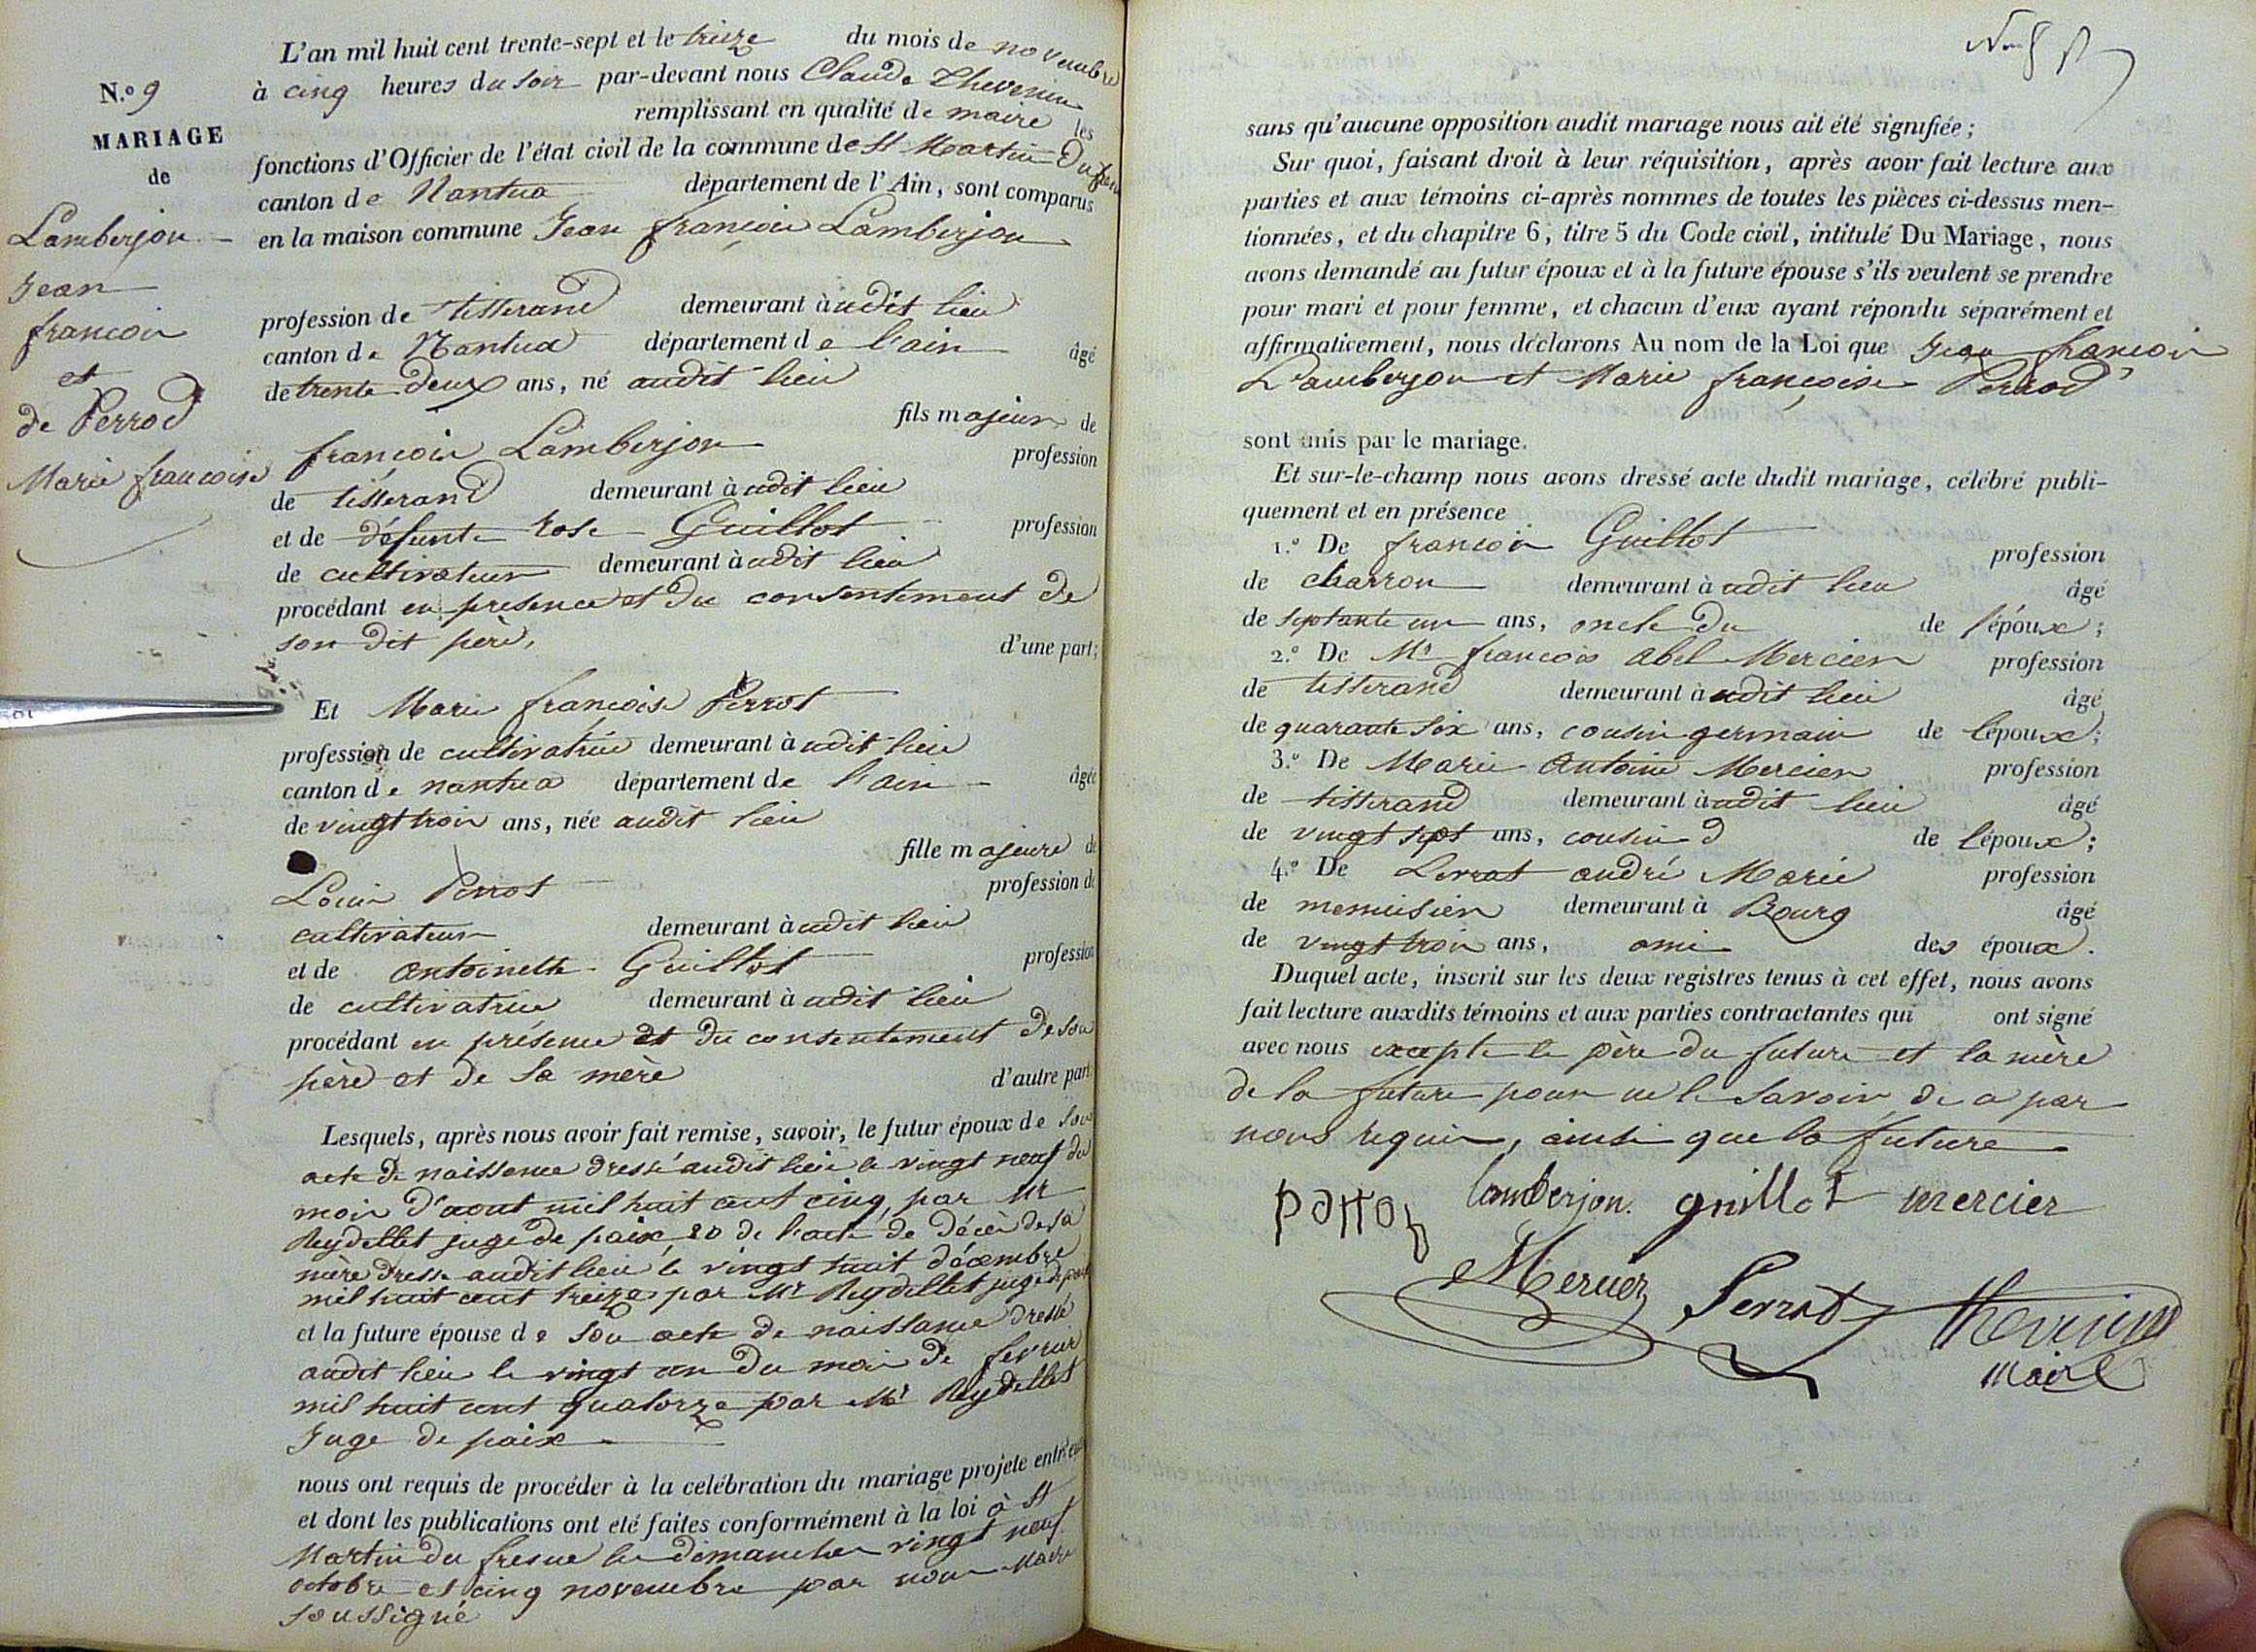 N.º 9
MARIAGE
de
Lamberjon
Jean
francois
et
de Perrod
Marie francoise
L'an mil huit cent trente-sept et le treize du mois de novembre
à cinq heures du soir par-devant nous Claude Thevenin
remplissant en qualité de maire les
fonctions d'Officier de l'état civil de la commune de St Martin Du frene
canton de Nantua département de l'Ain, sont comparus
en la maison commune Jean françois Lamberjon
profession de tisserand demeurant à udit lieu
canton de Nantua département de l'ain âgé
de trente deux ans, né audit lieu
fils majeur de
françois Lamberjon profession
de tisserand demeurant à udit lieu
et de défunte Rose Guillot profession
de cultivateur demeurant à udit lieu
procédant en presence et du consentement de
son dit père, d'une part;
Et Marie francoise Perrot
profession de cultivatrice demeurant à udit lieu
canton de nantua département de l'ain âgée
de vingt trois ans, née audit lieu
fille majeure de
Louis Perrot profession de
cultivateur demeurant à udit lieu
et de antoinette Guillot profession
de cultivatrice demeurant à udit lieu
procédant en présence et du consentement de son
père et de sa mère d'autre part
Lesquels, après nous avoir fait remise, savoir, le futur époux de son
acte de naissance dressé audit lieu le vingt neuf du
mois d'aout mil huit cent cinq, par Mr
Reydellet juge de paix, 20 de l'acte de décès de sa
mère dressé audit lieu le vingt huit décembre
mil huit cent treize par Mr Reydellet juge de paix
et la future épouse de son acte de naissance dressé
audit lieu le vingt un du mois de fevrier
mil huit cent quatorze par Mr Reydellet
Juge de paix
nous ont requis de procéder à la celébration du mariage projeté entr'eux
et dont les publications ont été faites conformément à la loi à St
Martin du fresne les dimanches vingt neuf
octobre et cinq novembre par nous Maire
soussigné
sans qu'aucune opposition audit mariage nous ait été signifiée;
Sur quoi, faisant droit à leur réquisition, après avoir fait lecture aux
parties et aux témoins ci-après nommes de toutes les pièces ci-dessus men-
tionnées, et du chapitre 6, titre 5 du Code civil, intitulé Du Mariage, nous
avons demandé au futur époux et à la future épouse s'ils veulent se prendre
pour mari et pour femme, et chacun d'eux ayant répondu séparément et
affirmativement, nous déclarons Au nom de la Loi que Jean francois
Lamberjon et Marie françoise Perrod
sont unis par le mariage.
Et sur-le-champ nous avons dressé acte dudit mariage, célébré publi-
quement et en présence
1.º De francois Guillot profession
de charron demeurant à udit lieu âgé
de septante un ans, oncle du de l'époux;
2.º De Mr francois abel Mercier profession
de tisserand demeurant à udit lieu âgé
de quarante six ans, cousin germain de lépoux;
3.º De Marie Antoine Mercier profession
de tisserand demeurant à udit lieu âgé
de vingt sept ans, cousin d de lépoux;
4.º De Serrat andré Marie profession
de menuisier demeurant à Bourg âgé
de vingt trois ans, ami des époux.
Duquel acte, inscrit sur les deux registres tenus à cet effet, nous avons
fait lecture auxdits témoins et aux parties contractantes qui ont signé
avec nous excepte le père du future et la mère
de la future pour ne le savoir de a par
nous requis, ainsi que la future
lamberjon. guillot mercier
Mercier Serrat thevenin
maire